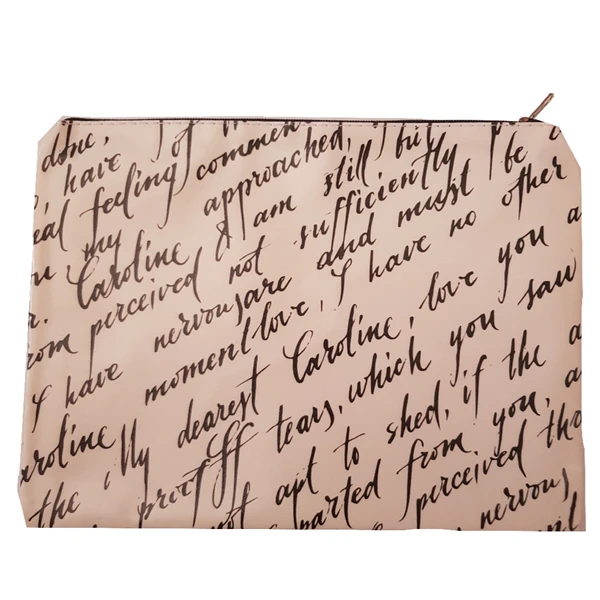 done,
I have of
feeling comment
my approached,
Caroline I am still but
from perceived not sufficiently be
I have nervous are and must
moment love, I have no other
Caroline My dearest Caroline, love you a
the proof tears, which you saw
not apt to shed, if the a
parted from you, a
perceived tho
nervous